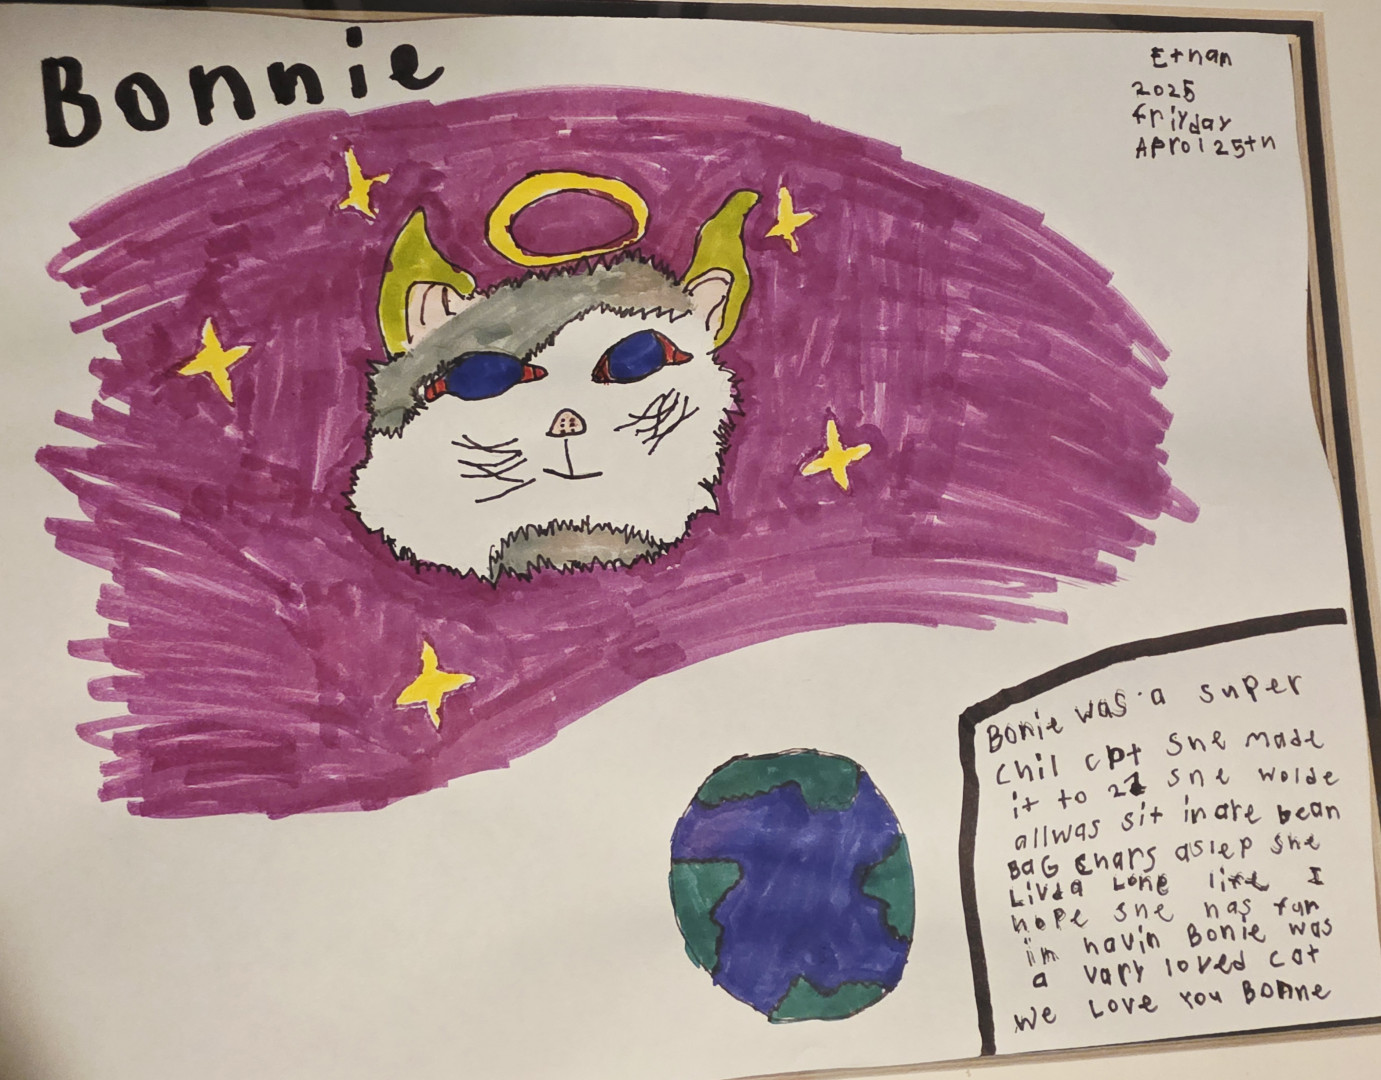 Bonnie
Ethan
2025
friyday
Aprol 25th
Bonie was a super
chil cpt she made
it to 21 she wolde
allwas sit in are bean
BaG chars aslep she
Livd a Long life I
hope she has fun
in havin Bonie was
a vary loved cat
We Love You Bonne